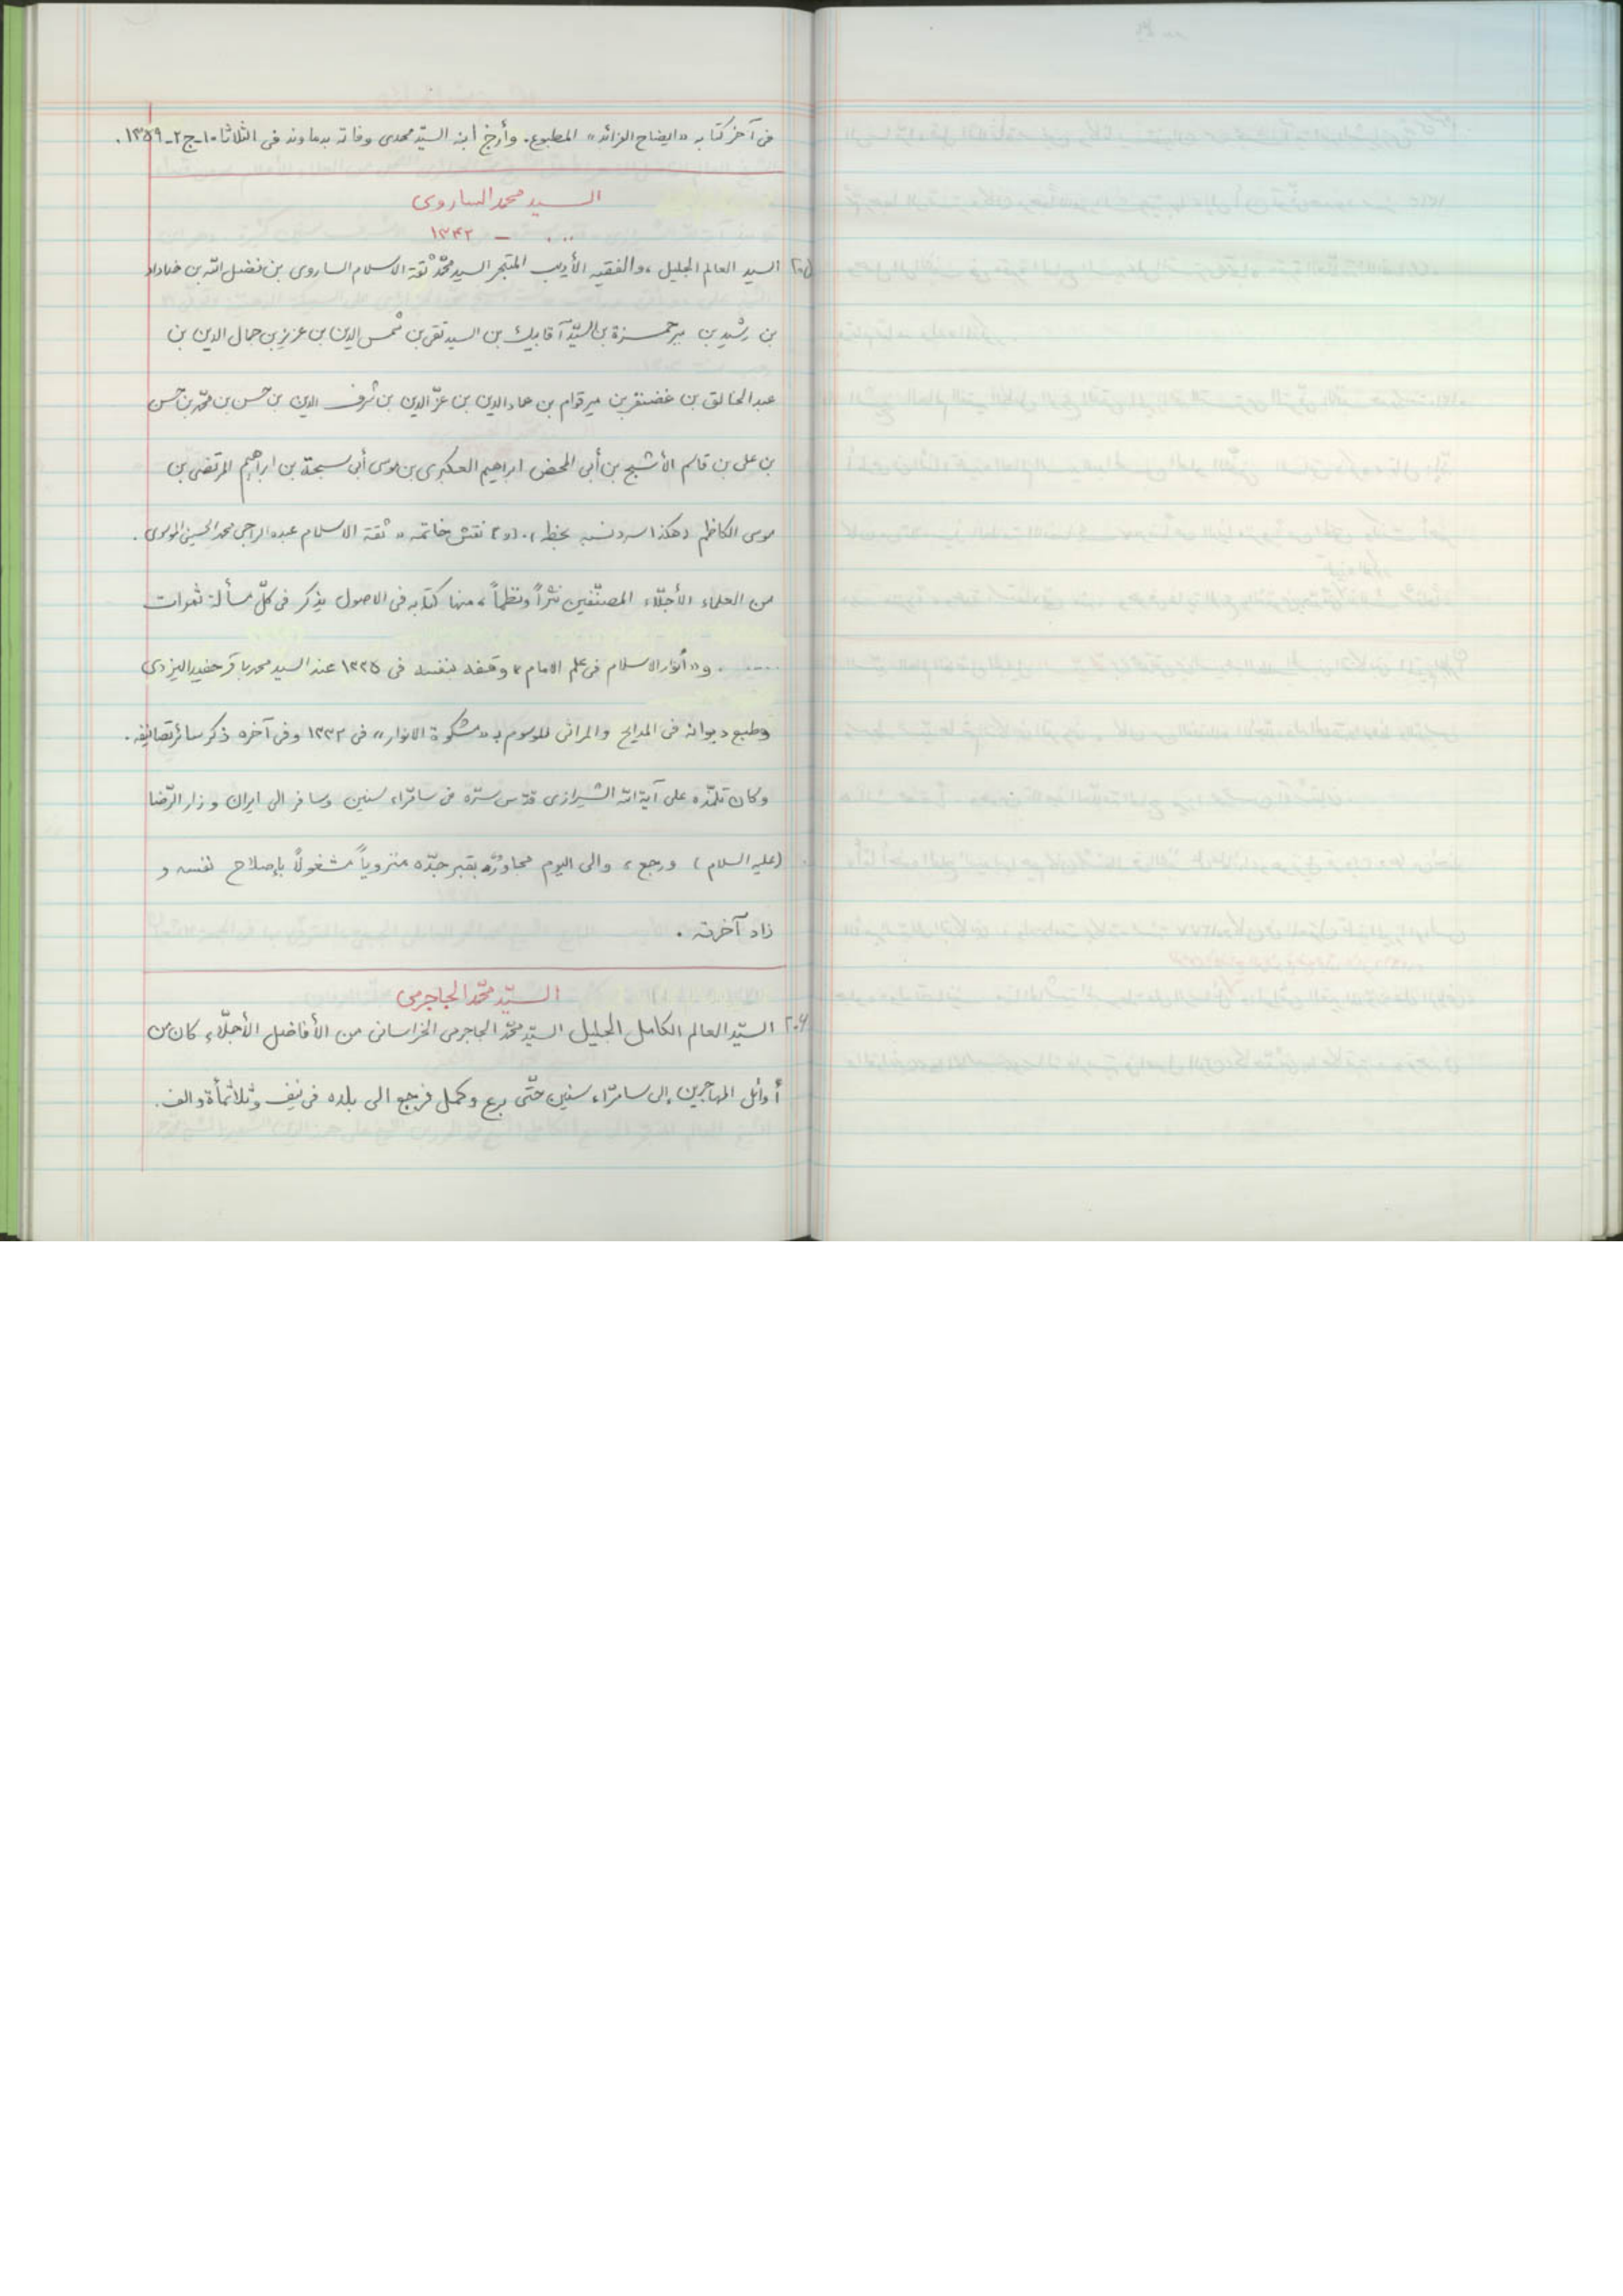 في آخر كتابه «ايضاح الفرائد» المطبوع. وأرخ ابنه السيّد محمدى وفاته بدماوند فى الثلاثا ١٠ـ ج٢ـ ١٣٥٩.
السيد محمد الساروى
... ــ ١٣٤٢
٢٠٥ السيد العالم الجليل، والفقيه الأديب المتبحر السيد محمّد ثقة الاسلام الساروى بن فضل اللّه بن خداداد
بن رشيد بن مير حمزة بن السيّد آقا بيك بن السيد تقى بن شمس الدين بن عزيز بن جمال الدين بن
عبد الخالق بن غضنفر بن مير قوام بن عماد الدين بن عزّ الدين بن شرف الدين بن حسن بن محمّد بن حسن
بن على بن قاسم الأشبح بن أبى المحض ابراهيم العكبرى بن موسى أبى سبحة بن ابراهيم المرتضى بن
موسى الكاظم (هكذا سرد نسبه بخطه). [و] نقش خاتمه «ثقة الاسلام عبده الراجى محمد الحسينى الموسوى.
من العلماء الأجلّاء المصنّفين نثراً ونظماً، منها كتابه فى الاصول يذكر فى كلّ مسألة ثمرات
..... و«أنوار الاسلام فى علم الامام» وقفه بنفسه فى ١٣٢٥ عند السيد محمد باقر حفيد اليزدى
وطبع ديوانه فى المدايح والمراثى الموسوم بـ «مشكوة الانوار» فى ١٣٣٢ وفى آخره ذكر سائر تصانيفه.
وكان تلمّذه على آية اللّه الشيرازى قدّس سرّه فى سامرّاء سنين وسافر الى ايران وزار الرّضا
(عليه السلام) ورجع، والى اليوم مجاورٌ بقبر جدّه منزوياً مشغولاً بإصلاح نفسه و
زاد آخرته.
السيّد محمّد الجاجرمى
٢٠٦ السيّد العالم الكامل الجليل السيّد محمّد الجاجرمى الخراسانى من الأفاضل الأجلّاء، كان من
أوائل المهاجرين إلى سامرّاء سنين حتّى برع وكمل فرجع الى بلده فى نيّف وثلاثمأة والف.